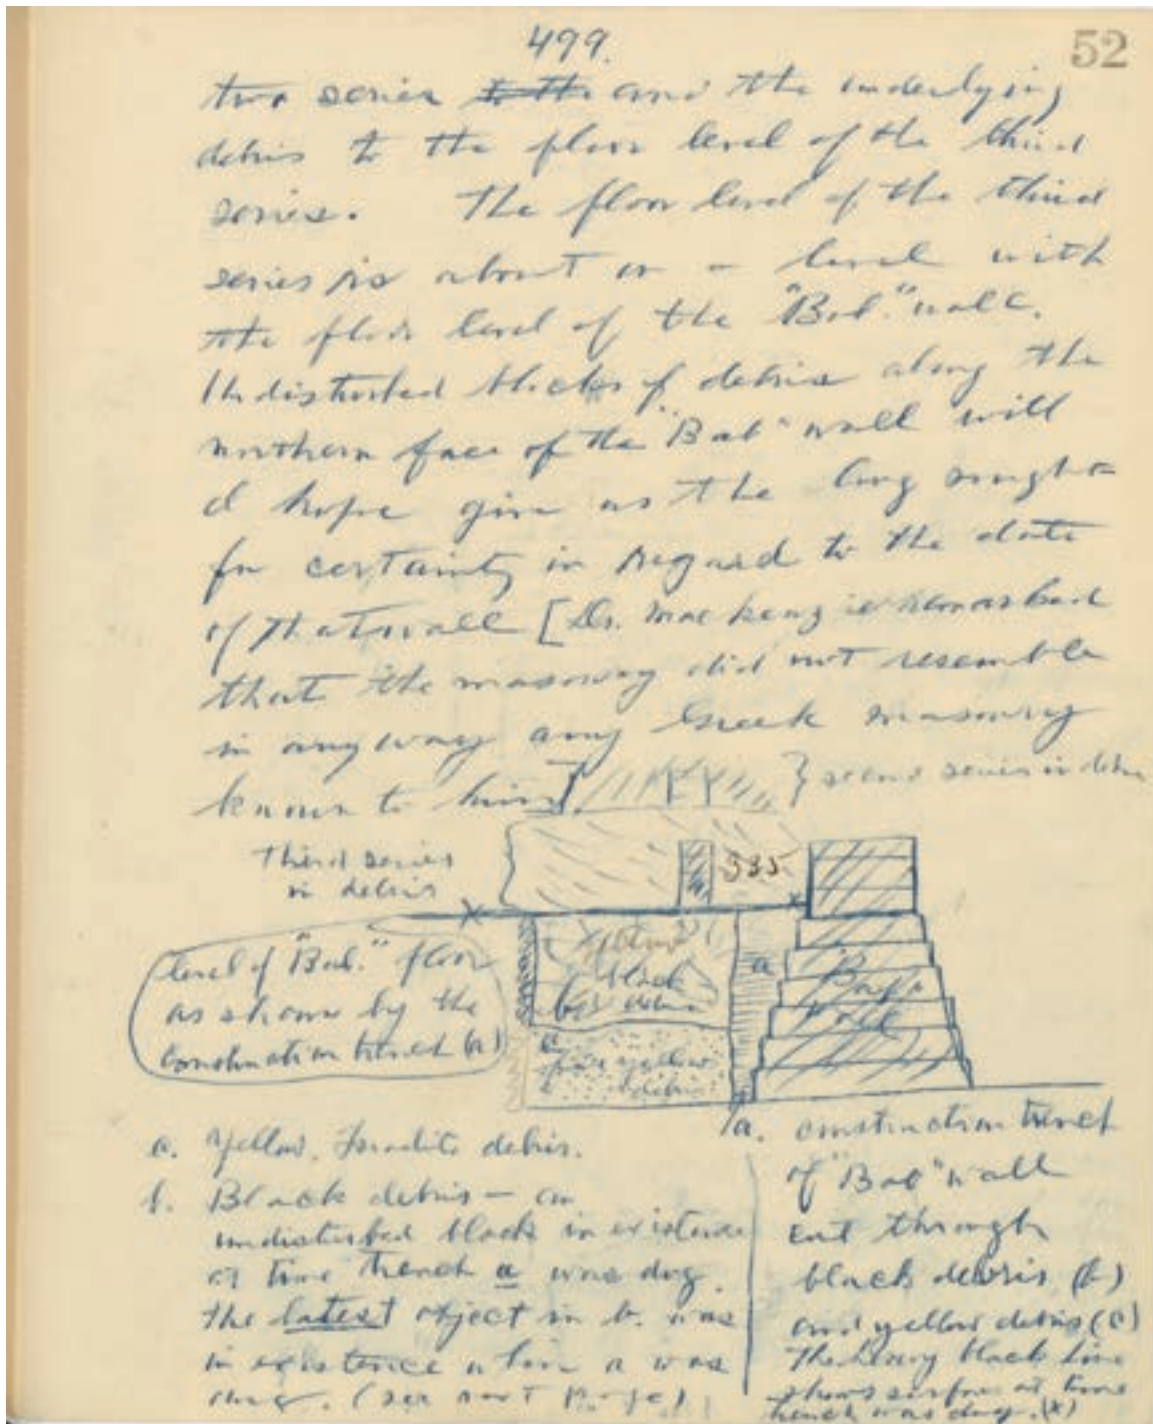 499.
52
two series to the and the underlying
debris to the floor level of the third
series. The floor level of the third
series is about on a level with
the floor level of the "Bab." wall.
Undisturbed blocks of debris along the
northern face of the "Bab" wall will
I hope give us the long sought
for certainty in regard to the date
of that wall [Dr. Mackenzie remarked
that the masonry did not resemble
in any way any Greek masonry
known to him]
} second series in debris
Third series
in debris
335
level of "Bab." floor
as shown by the
construction trench (a)
yellow
black
b debris
a
Wall
c
yellow
debris
c. Yellow, Israelite debris.
b. Black debris – an
undisturbed block in existence
at time trench a was dug.
The latest object in b. was
in existence when a was
dug. (see next page)
a. construction trench
of "Bab" wall
cut through
black debris (b)
and yellow debris (c)
The heavy black line
shows surface at time
trench was dug. (x)